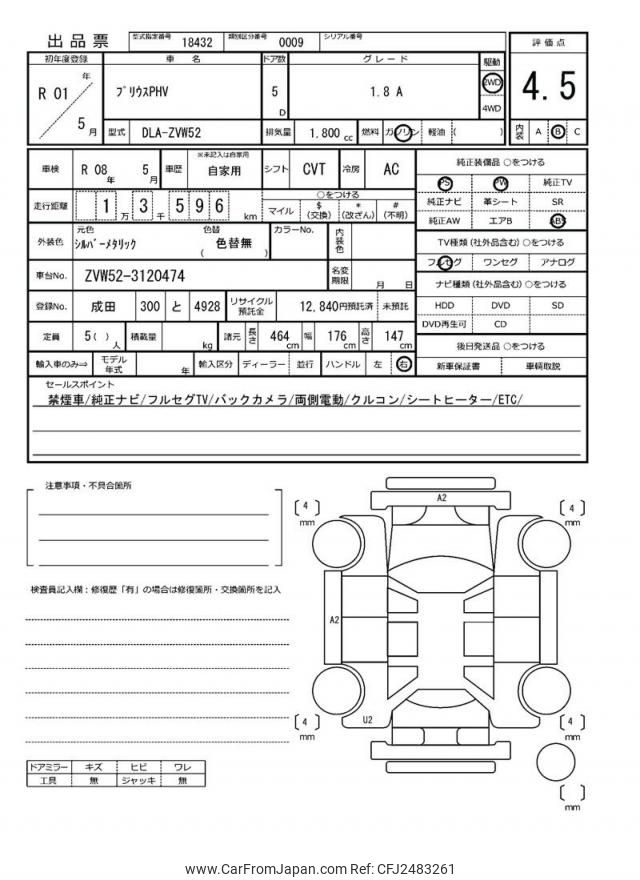 出品票 型式指定番号 18432 類別区分番号 0009 シリアル番号
初年度登録 車 名 ドア数 グレード 駆動 評価点
R 01 年 5 月 プリウスPHV 5 D 1.8 A 2WD 4WD 4.5
型式 DLA-ZVW52 排気量 1,800 cc 燃料 ガソリン 軽油 ( ) 内装 A B C
車検 R 08 年 5 月 車歴 ※未記入は自家用 自家用 シフト CVT 冷房 AC
純正装備品 ○をつける
PS PW 純正TV
純正ナビ 革シート SR
純正AW エアB ABS
走行距離 1 万 3 千 5 9 6 km ○をつける
マイル $ (交換) * (改ざん) # (不明)
外装色 元色 シルバーメタリック 色替 ( 色替無 ) カラーNo. 内装色
TV種類 (社外品含む) ○をつける
フルセグ ワンセグ アナログ
車台No. ZVW52-3120474 名変期限 月 日
ナビ種類 (社外品含む) ○をつける
HDD DVD SD
DVD再生可 CD
登録No. 成田 300 と 4928 リサイクル預託金 12,840円預託済 未預託
定員 5 ( ) 人 積載量 kg 諸元 長さ 464 cm 幅 176 cm 高さ 147 cm
後日発送品 ○をつける
新車保証書 車輌取説
輸入車のみ⇒ モデル年式 年 輸入区分 ディーラー 並行 ハンドル 左 右
セールスポイント
禁煙車/純正ナビ/フルセグTV/バックカメラ/両側電動/クルコン/シートヒーター/ETC/
注意事項・不具合箇所
検査員記入欄：修復歴「有」の場合は修復箇所・交換箇所を記入
A2
4 mm
4 mm
A2
U2
4 mm
4 mm
mm
ドアミラー キズ ヒビ ワレ
工具 無 ジャッキ 無
www.CarFromJapan.com Ref: CFJ2483261